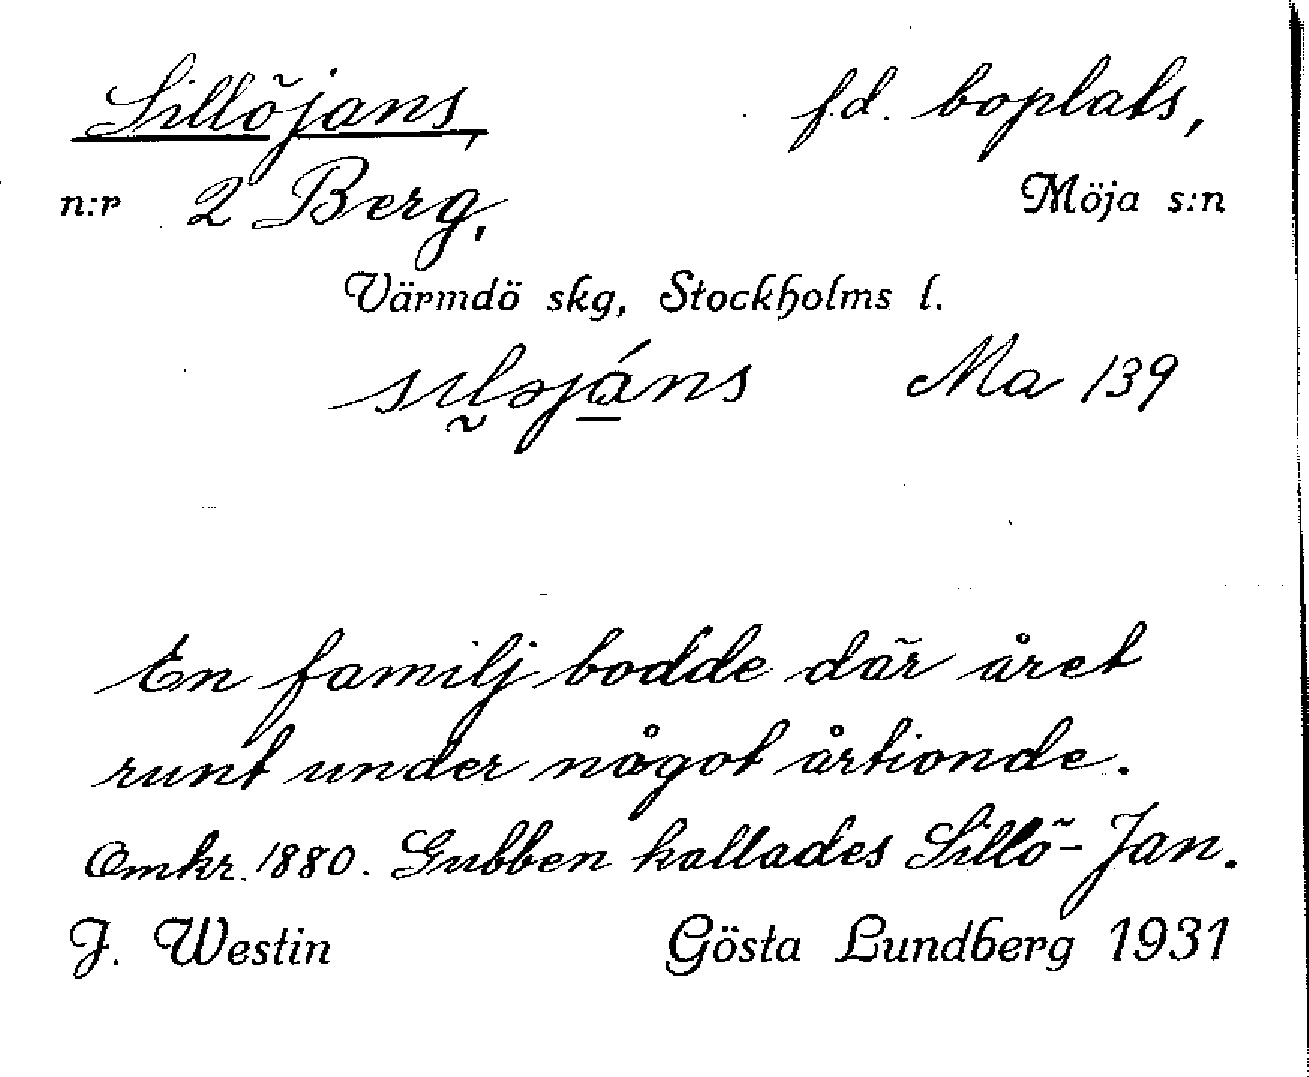 Sillöjans, f.d. boplats,
n:r 2 Berg, Möja s:n
Värmdö skg, Stockholms l.
sılǝjáns Ma 139
En familj bodde där året
runt under något årtionde.
Omkr. 1880. Gubben kallades Sillö-Jan.
J. Westin Gösta Lundberg 1931